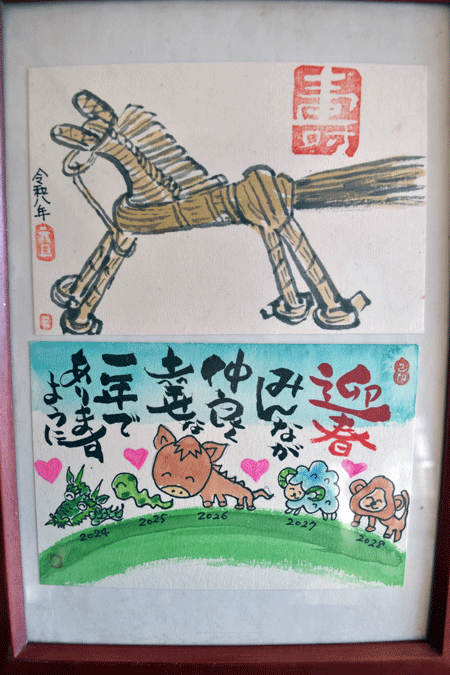 壽
令和八年
元旦
迎春
みんなが
仲良く
幸せな
一年で
あります
ように
2024
2025
2026
2027
2028